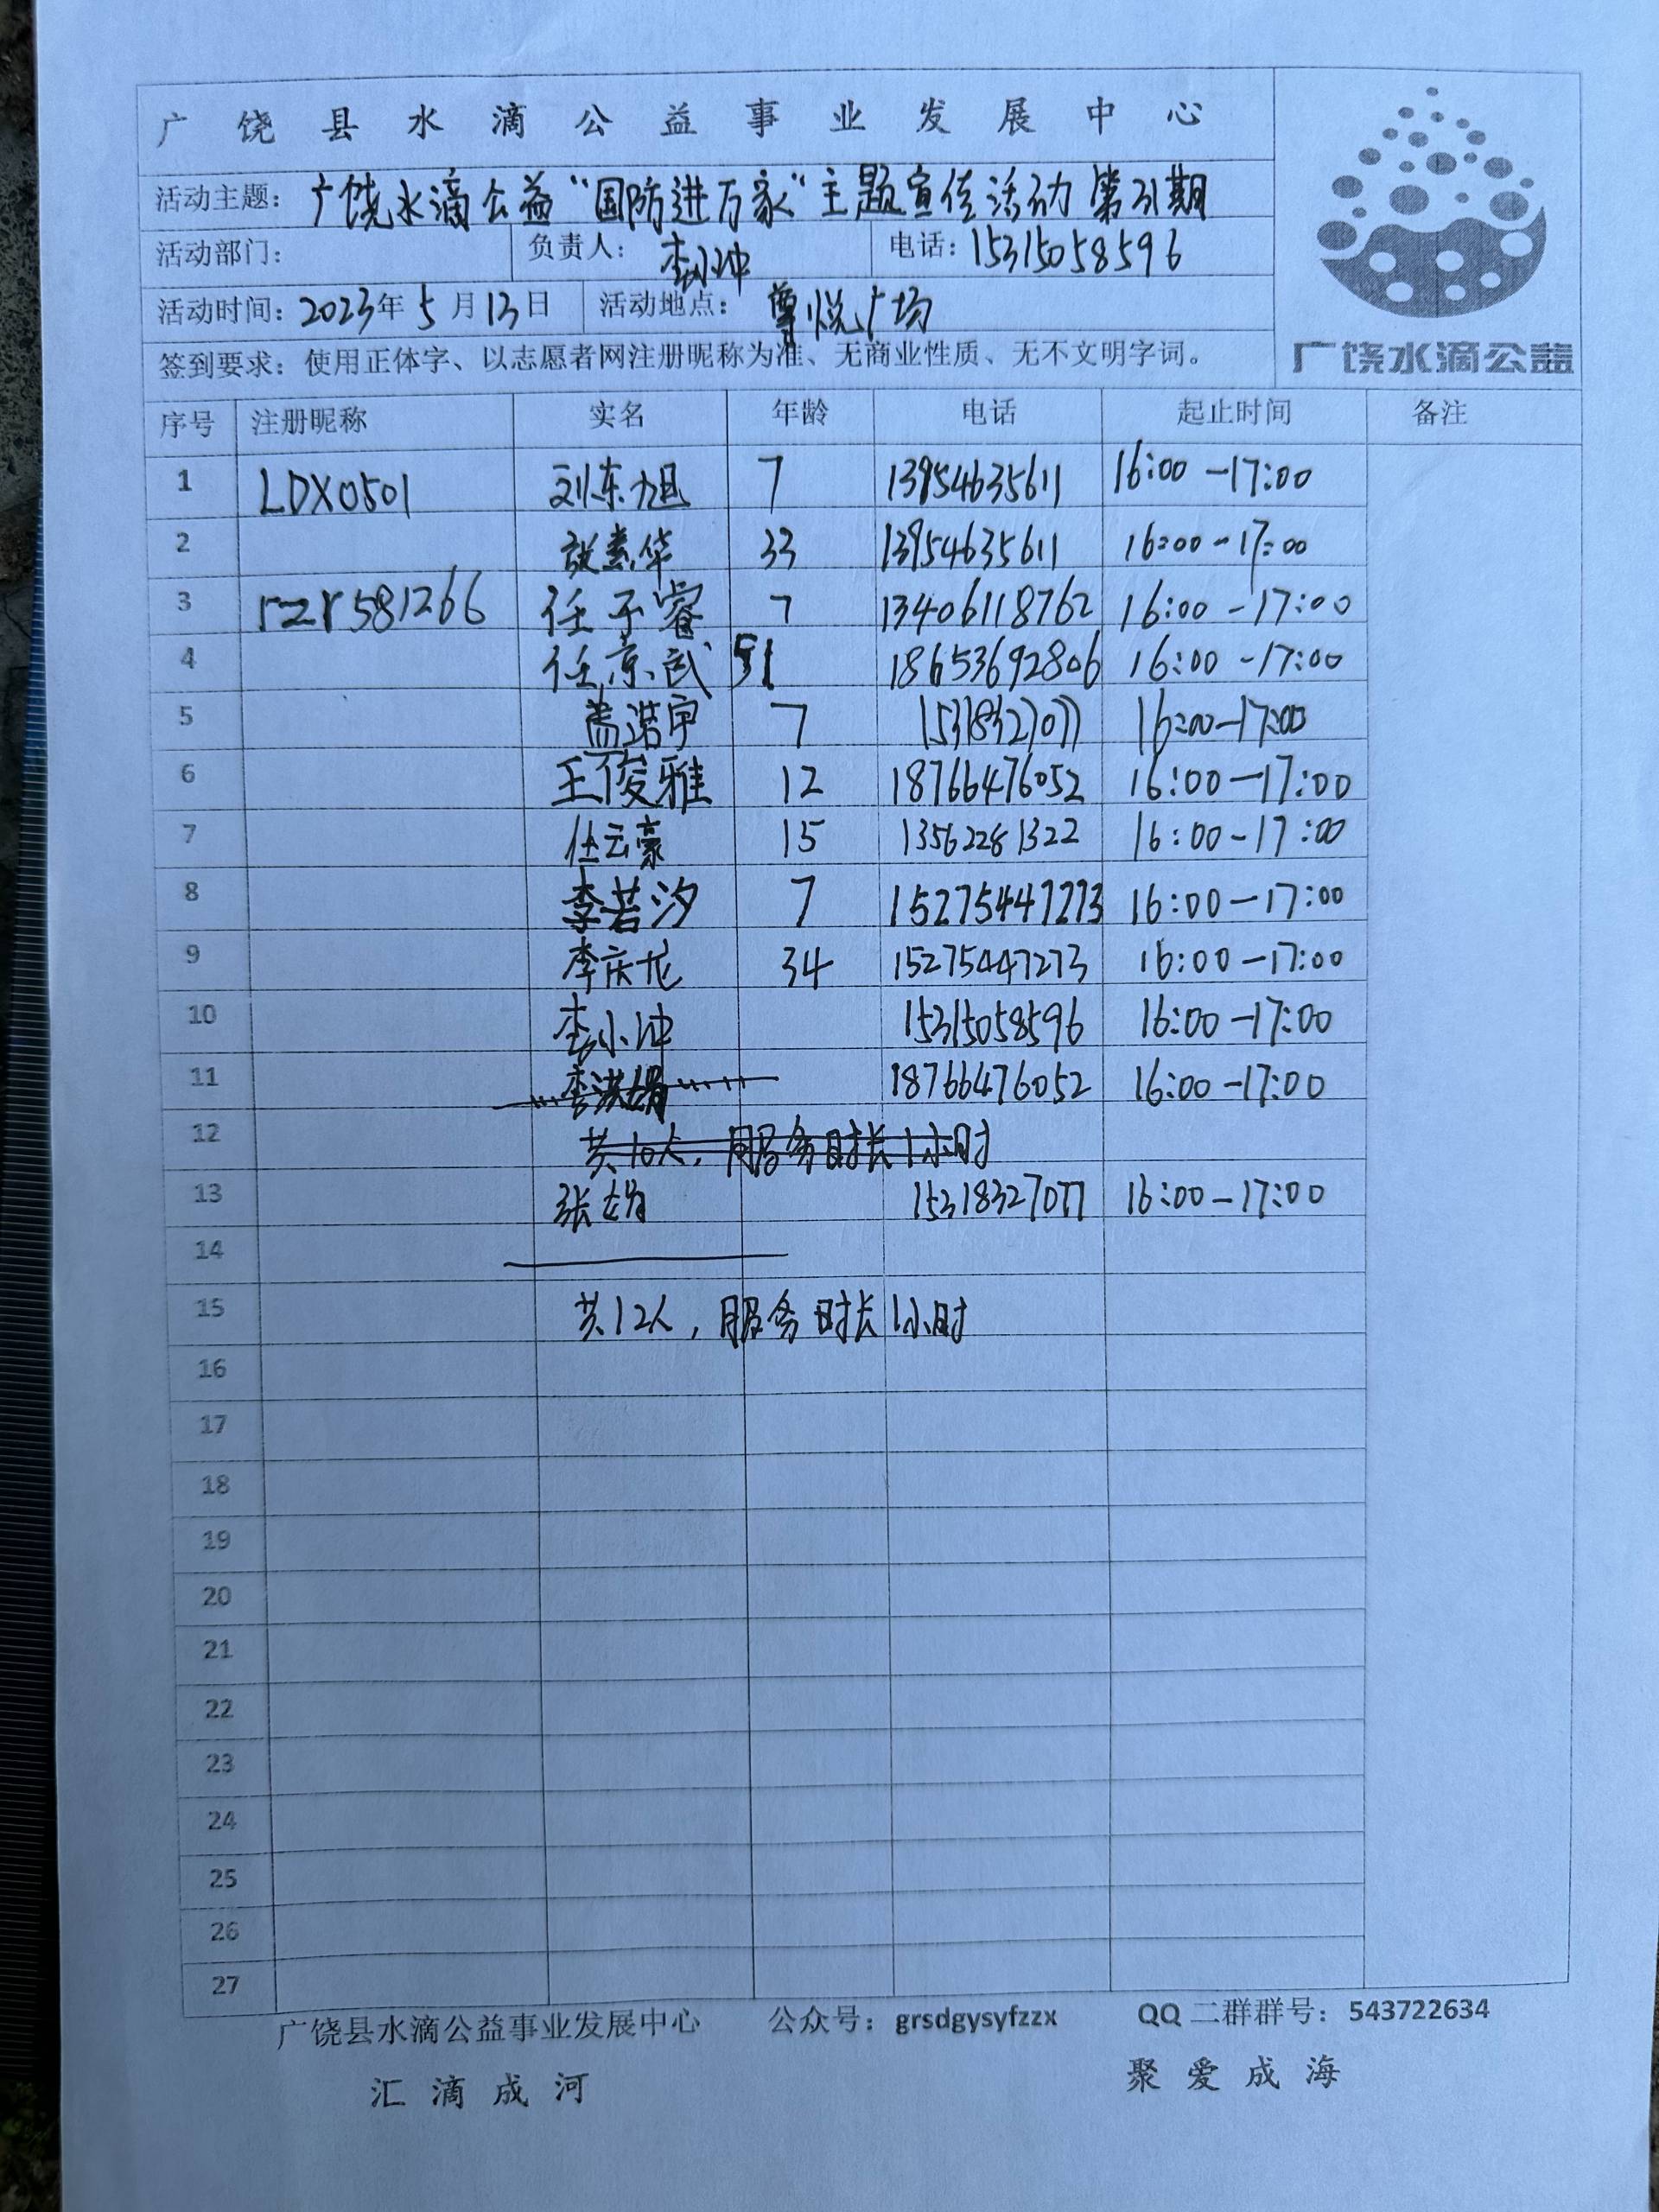 广饶县水滴公益事业发展中心
活动主题：广饶水滴公益“国防进万家”主题宣传活动第31期
活动部门： 负责人：李小冲 电话：15315058596
活动时间：2023年5月13日 活动地点：尊悦广场
签到要求：使用正体字、以志愿者网注册昵称为准、无商业性质、无不文明字词。
广饶水滴公益
序号 注册昵称 实名 年龄 电话 起止时间 备注
1 LDX0501 刘东旭 7 13954635611 16:00-17:00
2 33 13954635611 16:00-17:00
3 rzr581266 任子睿 7 13406118762 16:00-17:00
4 任京武 51 18653692806 16:00-17:00
5 盖浩宇 7 15318327077 16:00-17:00
6 王俊雅 12 18766476052 16:00-17:00
7 任云豪 15 13562281322 16:00-17:00
8 李若汐 7 15275447273 16:00-17:00
9 李庆龙 34 15275447273 16:00-17:00
10 李小冲 15315058596 16:00-17:00
11 李洪娟 18766476052 16:00-17:00
12 共10人，服务时长1小时
13 张娟 15318327077 16:00-17:00
14
15 共12人，服务时长1小时
16
17
18
19
20
21
22
23
24
25
26
27
广饶县水滴公益事业发展中心 公众号：grsdgysyfzzx QQ二群群号：543722634
汇滴成河 聚爱成海